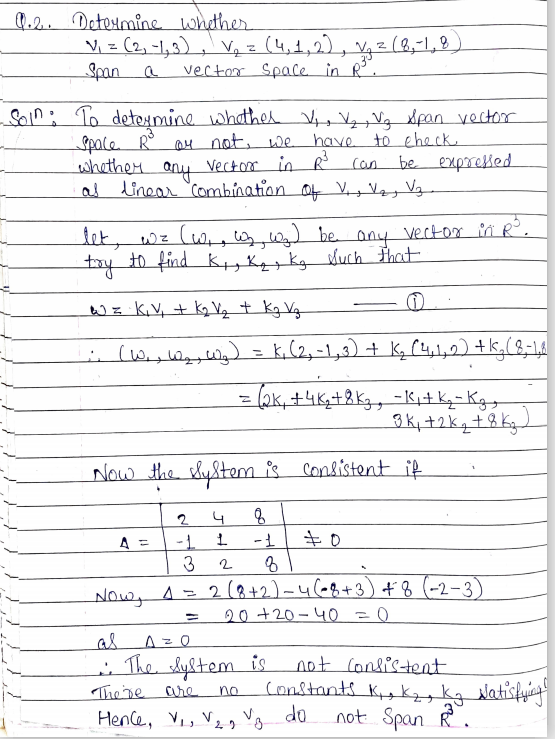 Q.2. Determine whether
V₁ = (2,-1,3) , V₂ = (4,1,2) , V₃ = (8,-1,8)
Span a vector space in R³.
Solⁿ: To determine whether V₁, V₂, V₃ span vector
space R³ or not, we have to check,
whether any vector in R³ can be expressed
as linear combination of V₁, V₂, V₃.
let, w = (w₁, w₂, w₃) be any vector in R³.
try to find K₁, K₂, K₃ such that
w = K₁V₁ + K₂V₂ + K₃V₃ —— ①
∴ (w₁, w₂, w₃) = K₁(2,-1,3) + K₂(4,1,2) + K₃(8,-1,8
= (2K₁+4K₂+8K₃, -K₁+K₂-K₃,
3K₁+2K₂+8K₃)
Now the system is consistent if
| 2 4 8 |
Δ = | -1 1 -1 | ≠ 0
| 3 2 8 |
Now, Δ = 2(8+2)-4(-8+3)+8(-2-3)
= 20+20-40 = 0
as Δ = 0
∴ The system is not consistent
There are no constants K₁, K₂, K₃ satisfying
Hence, V₁, V₂, V₃ do not span R³.